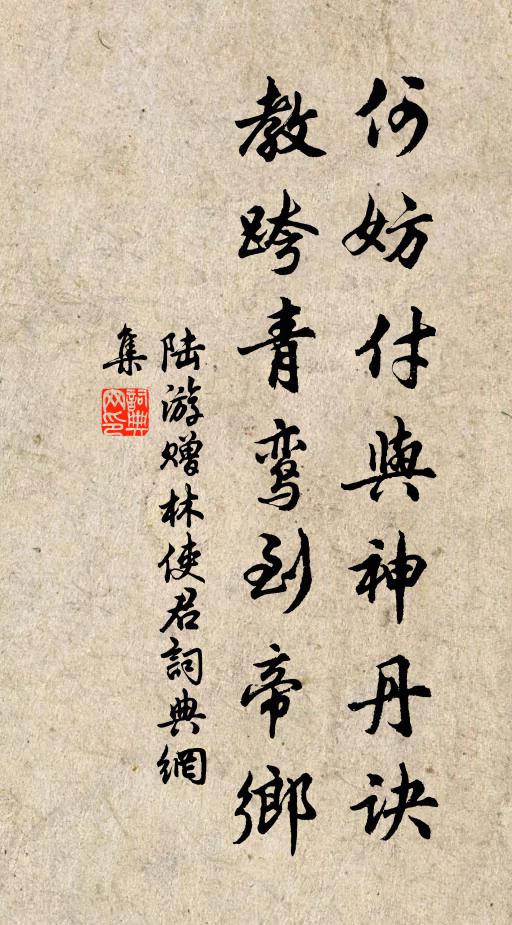 何妨付與神丹诀
教跨青鸾到帝鄉
陆游赠林使君詞典網
集
詞典網印